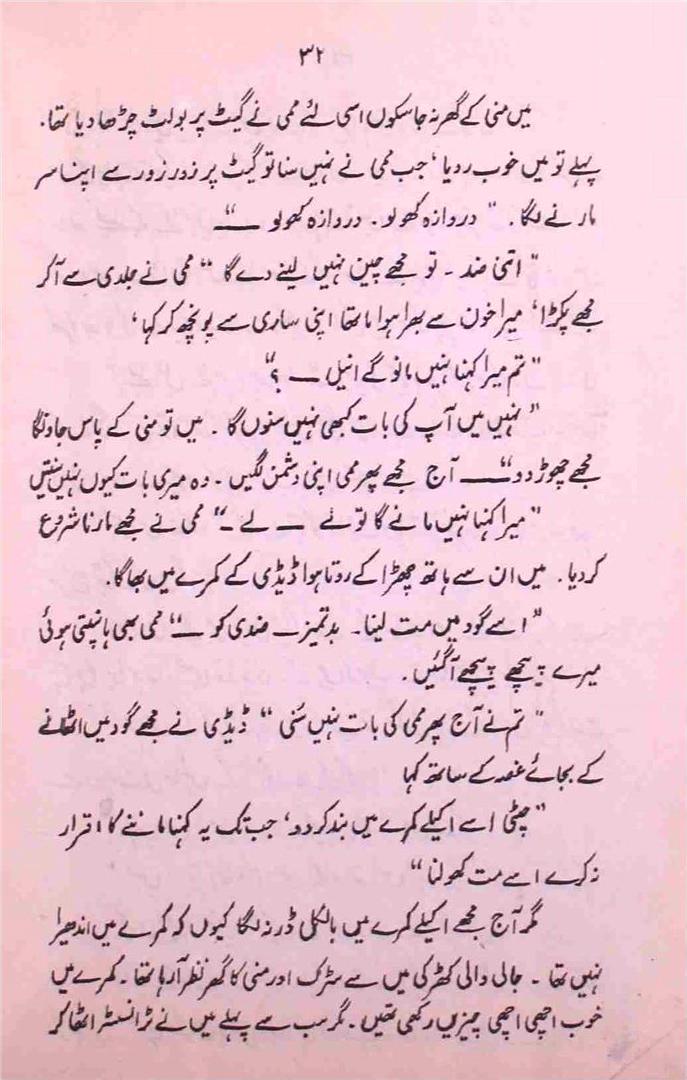 ۳۲
میں منی کے گھر نہ جا سکوں اسی لئے ممی نے گیٹ پر بولٹ چڑھا دیا تھا۔
پہلے تو میں خوب رویا، جب ممی نے نہیں سنا تو گیٹ پر زور زور سے اپنا سر
مارنے لگا۔ " دروازہ کھولو۔ دروازہ کھولو ــــ"
" اتنی ضد ۔ تو مجھے چین نہیں لینے دے گا " ممی نے جلدی سے آ کر
مجھے پکڑا، میرا خون سے بھرا ہوا ماتھا اپنی ساری سے پونچھ کر کہا،
" تم میرا کہنا نہیں مانو گے انیل ــــ ؟"
" نہیں میں آپ کی بات کبھی نہیں سنوں گا ۔ میں تو منی کے پاس جاونگا
مجھے چھوڑ دو" ــــ آج مجھے پھر ممی اپنی دشمن لگیں ۔ وہ میری بات کیوں نہیں سنتیں
" میرا کہنا نہیں مانے گا تو لے ــــ لے ــ" ممی نے مجھے مارنا شروع
کر دیا۔ میں ان سے ہاتھ چھڑا کے روتا ہوا ڈیڈی کے کمرے میں بھاگا۔
" اسے گود میں مت لینا۔ بدتمیز ضدی کو ــــ" ممی بھی ہانپتی ہوئی
میرے پیچھے پیچھے آ گئیں۔
" تم نے آج پھر ممی کی بات نہیں سُنی " ڈیڈی نے مجھے گود میں اٹھانے
کے بجائے غصہ کے ساتھ کہا
" چھٹی اسے اکیلے کمرے میں بند کر دو، جب تک یہ کہنا ماننے کا اقرار
نہ کرے اسے مت کھولنا "
مگر آج مجھے اکیلے کمرے میں بالکل ڈر نہ لگا کیوں کہ کمرے میں اندھیرا
نہیں تھا ۔ جالی والی کھڑکی میں سے سڑک اور منی کا گھر نظر آ رہا تھا ۔ کمرے میں
خوب اچھی اچھی چیزیں رکھی تھیں ۔ مگر سب سے پہلے میں نے ٹرانسسٹر اٹھا کر